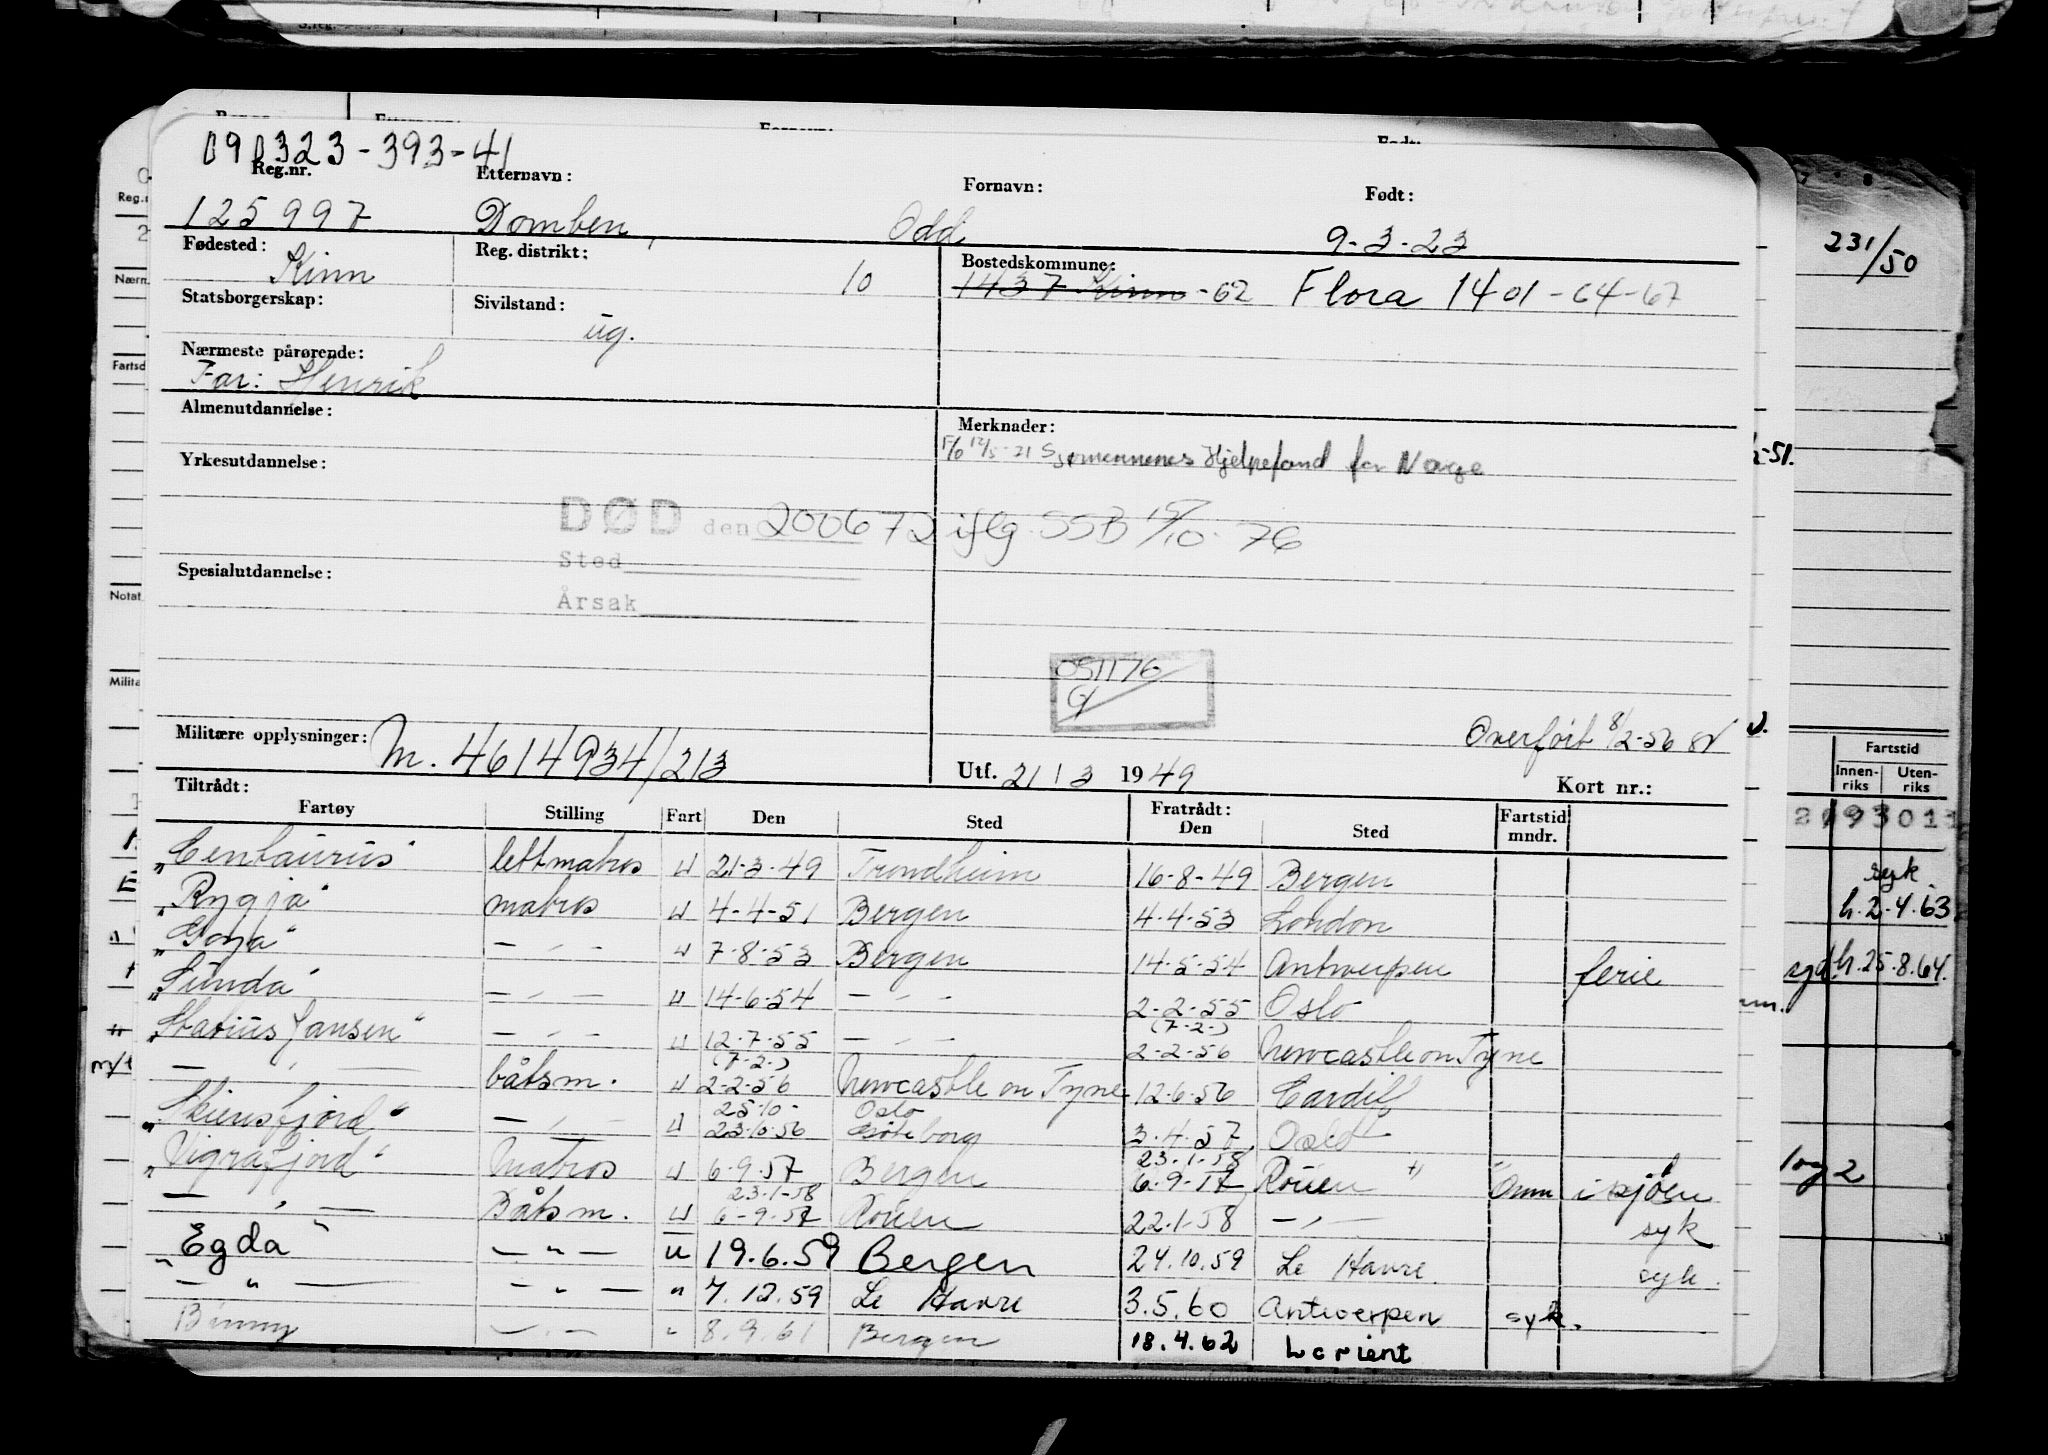 090323-393-41
Reg.nr. Etternavn: Fornavn: Født:
125997 Domben, Odd 9-3-23
Fødested: Kinn Reg. distrikt: 10 Bostedskommune: 1437 Kinn -62 Flora 1401-64-67
Statsborgerskap: Sivilstand: ug.
Nærmeste pårørende:
Far: Henrik
Almenutdannelse: Merknader:
Sjømennenes Hjelpefond for Norge
Yrkesutdannelse:
DØD den 200672 iflg. SSB 15/10-76
Sted
Spesialutdannelse:
Årsak
051176
Militære opplysninger: M. 4614934/213 Overført 8/2-56
Utf. 21/3 1949 Kort nr.:
Tiltrådt: Fratrådt:
Fartøy Stilling Fart Den Sted Den Sted Fartstid mndr.
"Centaurus" lettmatros u 21-3-49 Trondheim 16-8-49 Bergen
"Rygja" matros u 4-4-51 Bergen 4-4-53 London
"Goya" — " — u 7-8-53 Bergen 14-5-54 Antwerpen ferie
"Sunda" — " — u 14-6-54 — " — 2-2-55 Oslo
(7-2-)
"Statius Jansen" — " — u 12-7-55 — " — 2-2-56 Newcastle on Tyne
(7-2-)
— " — båtsm. u 2-2-56 Newcastle on Tyne 12-6-56 Cardiff
25-10- Oslo
"Skiensfjord" — " — u 23-10-56 Göteborg 3-4-57 Oslo
23-1-58
"Vigrafjord" Matros u 6-9-57 Bergen 6-9-57 Rouen " Omm i sjøen
23-1-58
— " — Båtsm. u 6-9-57 Rouen 22-1-58 — " — syk
"Egda" — " — u 19.6.59 Bergen 24.10.59 Le Havre. syk.
— " — — " — " 7.12.59 Le Havre 3.5.60 Antwerpen syk.
Binny — " — " 8.9.61 Bergen 18.4.62 Lorient
231/50
-51.
Reg.
Nærm.
Fartsd
Notat
Milita
m/t
Fartstid
Innenriks Utenriks
syk
h. 2.4.63
h. 25.8.64.
log 2